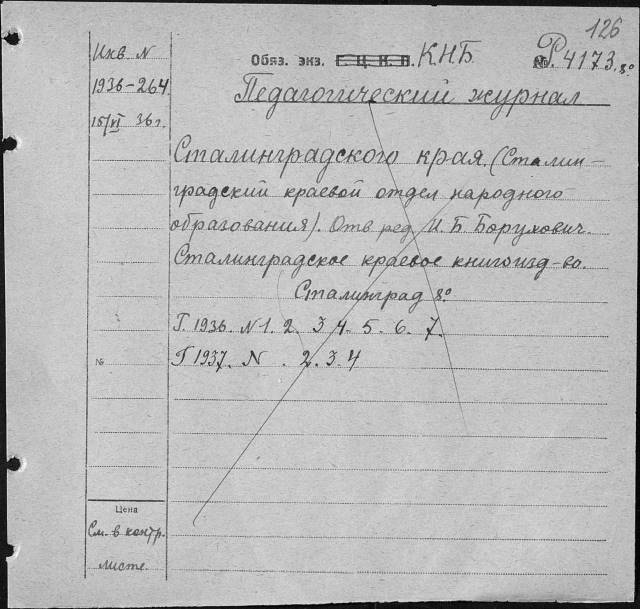 126
Инв N
Обяз. экз. Г. Ц. К. П. КНБ
№. Р. 4173. 8°
1936-264
Педагогический журнал
15/VI 36 г.
Сталинградского края. (Сталин-
градский краевой отдел народного
образования). Отв. ред. И. Б. Борухович.
Сталинградское краевое книгоизд-во.
Сталинград 8°
Г. 1936. N 1. 2. 3 4. 5. 6. 7.
№
Г 1937. N . 2. 3. 4
Цена
См. в контр.
листе.